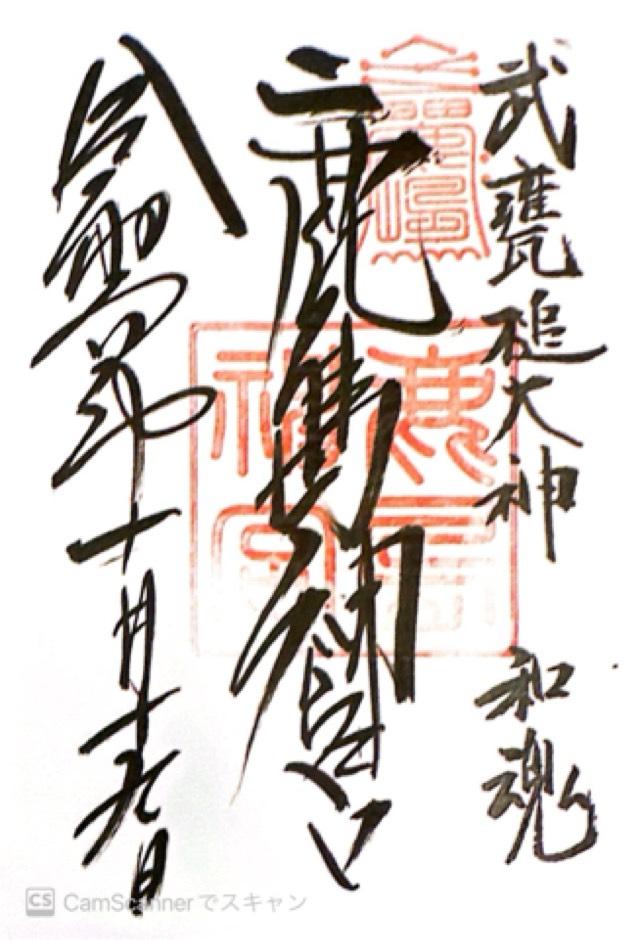 武甕槌大神 和魂
鹿島神宮
令和 年十月十九日
鹿島
神宮
CS CamScannerでスキャン